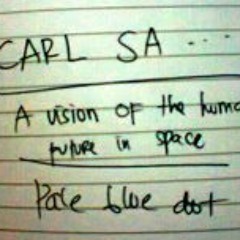 CARL SA ...
A vision of the huma
future in space
Pale blue dot